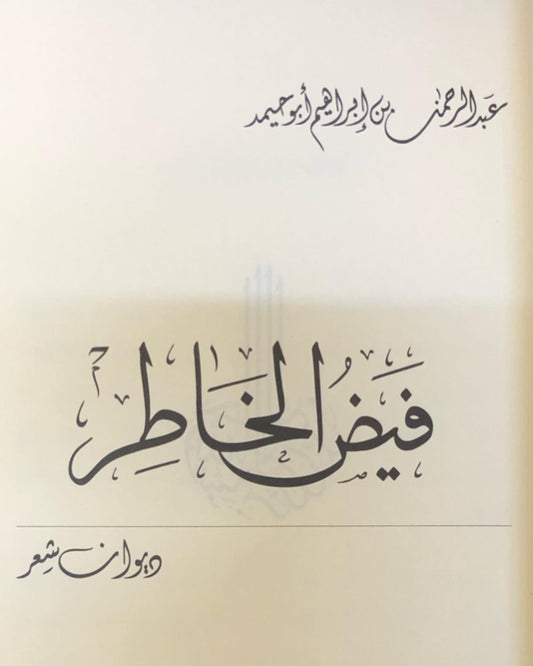 عبد الرحمن بن إبراهيم أبو حيمد
فَيْضُ الخَاطِر
ديوان شِعر